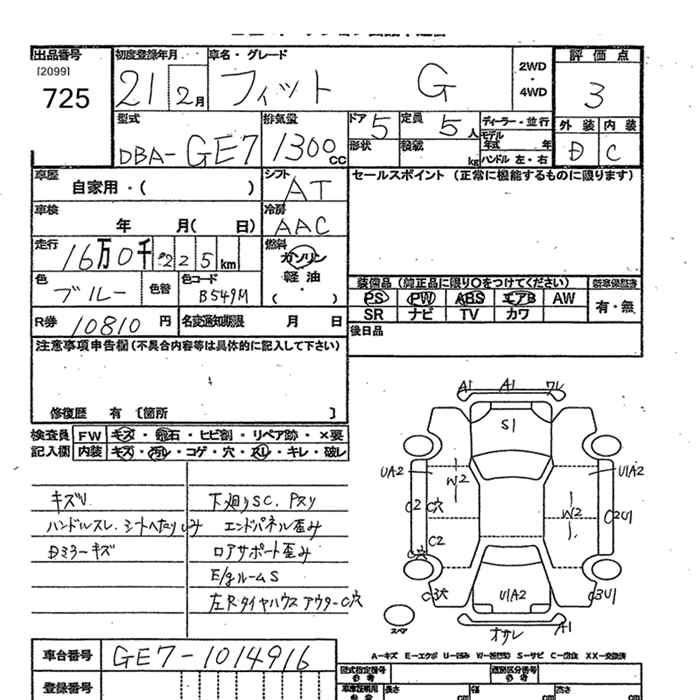 出品番号 初度登録年月 車名・グレード 2WD・4WD 評価点
[2099]
725 21 2月 フィット G 3
型式 排気量 ドア 5 定員 5人 ディーラー・並行 外装 内装
DBA-GE7 1300cc 形状 積載 kg モデル年式 年 D C
ハンドル 左・右
車歴 自家用・( ) シフト AT セールスポイント (正常に機能するものに限ります)
車検 年 月( 日) 冷房 AAC
走行 16万0千225km 燃料 ガソリン
軽油
・
( )
色 ブルー 色替 色コード B549M
装備品 (純正品に限り○をつけてください) 新車保証書
PS PW ABS エアB AW 有・無
SR ナビ TV カワ
R券 10810円 名変通知期限 月 日 後日品
注意事項申告欄(不具合内容等は具体的に記入して下さい)
修復歴 有 [箇所 ]
検査員 FW キズ・飛石・ヒビ割・リペア跡・×要
記入欄 内装 キズ・汚レ・コゲ・穴・スレ・キレ・破レ
キズU 下廻りSC. Pスリ
ハンドルスレ.シートへたりシミ エンドパネル歪み
Dミラーキズ ロアサポート歪ミ
E/gルームS
左RタイヤハウスアウターC穴
A1 A1 ワレ
S1
UA2 W2 W2 U1A2
C2 C穴 C2U1
C2
C穴
C3穴 U1A2 C3U1
スペア オサレ A1
A-キズ E-エクボ U-凹み W-波(凹凸) S-サビ C-腐食 XX-交換済
車台番号 GE7-1014916
型式指定番号 類別区分番号
登録番号 長さ cm 幅 cm 高さ cm